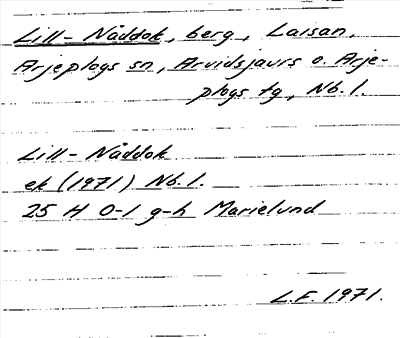 Lill-Nåddok, berg, Laisan,
Arjeplogs sn, Arvidsjaurs o. Arje-
plogs tg, Nb. l.
Lill-Nåddok
ek (1971) Nb. l.
25 H 0-1 g-h Marielund
L.F. 1971.